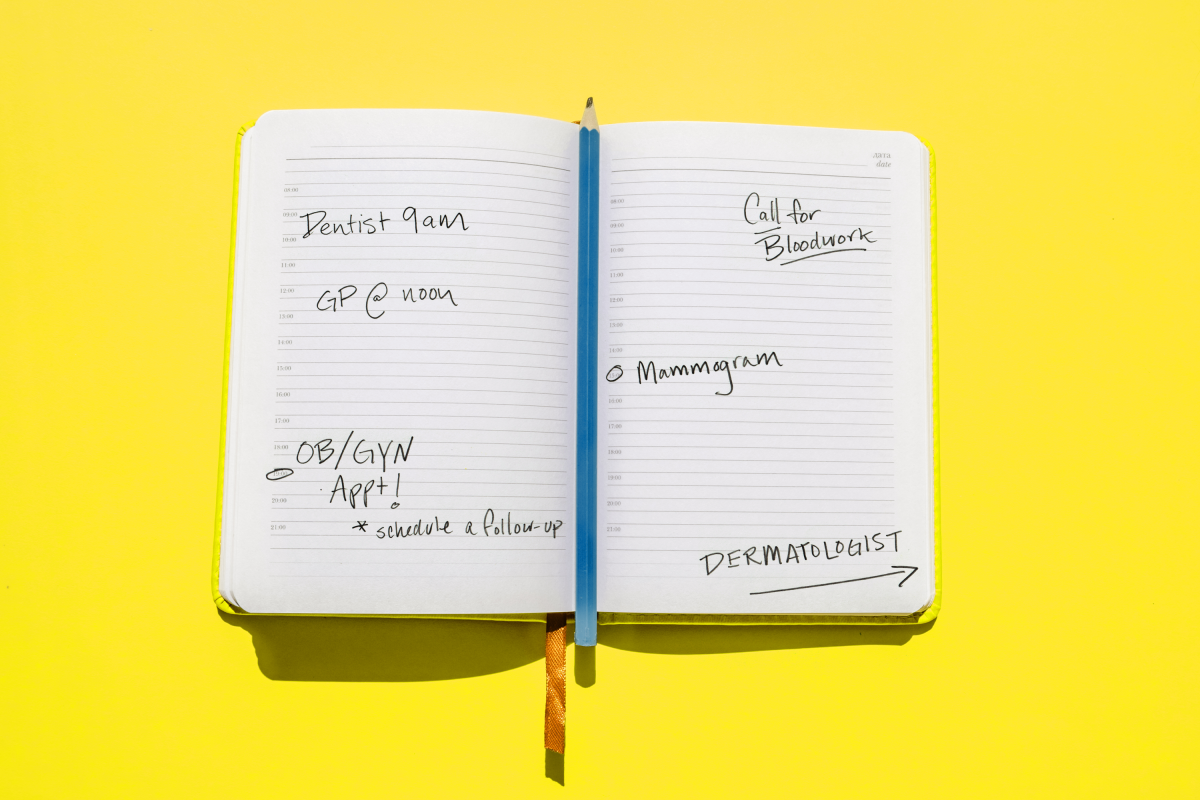 08:00
09:00
Dentist 9am
10:00
11:00
12:00
GP @ noon
13:00
14:00
15:00
16:00
17:00
18:00
OB/GYN
Appt!
20:00
* schedule a follow-up
21:00
дата
date
08:00
Call for
09:00
Bloodwork
10:00
11:00
12:00
13:00
14:00
Mammogram
16:00
17:00
18:00
19:00
20:00
21:00
DERMATOLOGIST